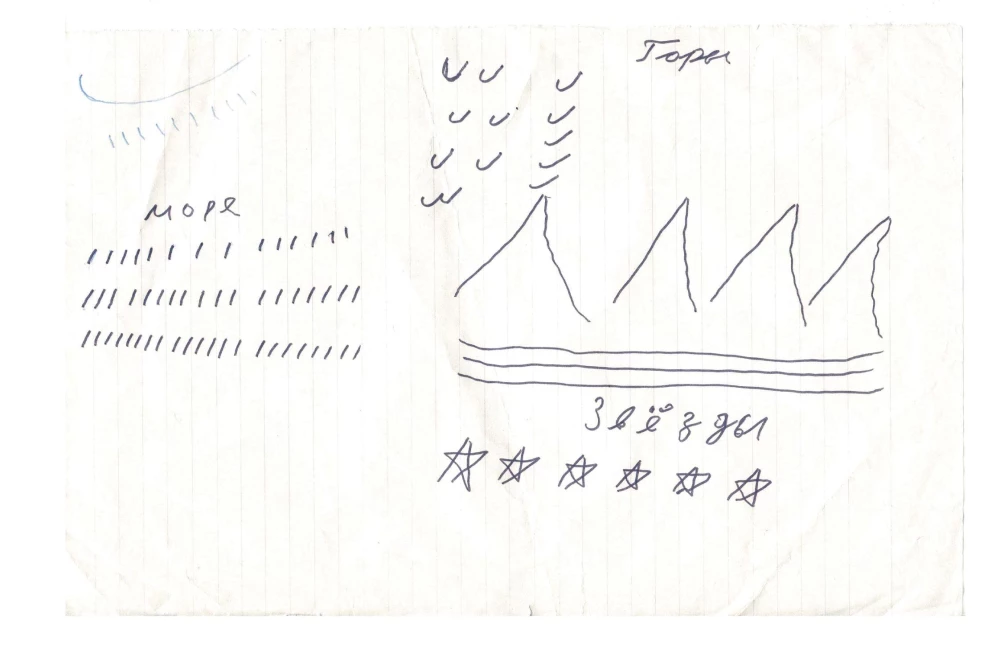 Горы
море
Звёзды